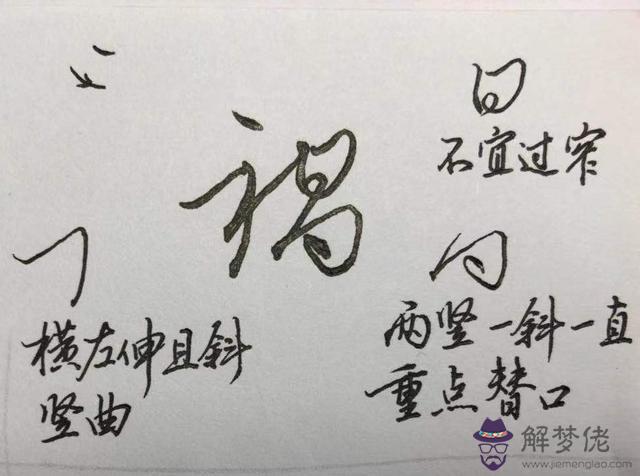 禍
不宜过窄
横左伸且斜
竖曲
两竖一斜一直
重点替口
解梦佬
www.jiemenglao.com